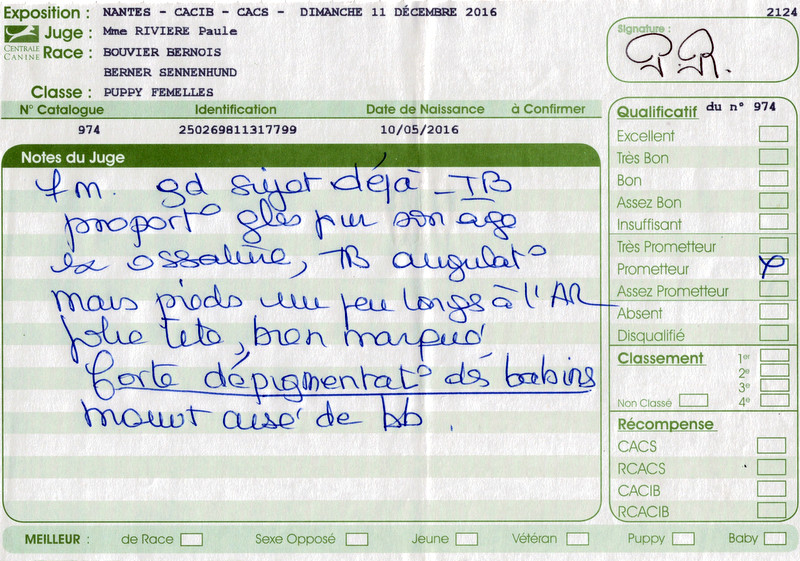 Exposition : NANTES - CACIB - CACS - DIMANCHE 11 DÉCEMBRE 2016
2124
CENTRALE CANINE
Juge : Mme RIVIERE Paule
Race : BOUVIER BERNOIS
BERNER SENNENHUND
Classe : PUPPY FEMELLES
Signature :
P.R.
N° Catalogue Identification Date de Naissance à Confirmer
974 250269811317799 10/05/2016
Notes du Juge
7 m. gd sujet déjà - TB
proport° gles pur son âge
ex ossature, TB angulat°
mais pieds un peu longs à l'AR
jolie tete, bien marqué
forte dépigmentat° des babins
mouvt aisé de bb.
Qualificatif du n° 974
Excellent
Très Bon
Bon
Assez Bon
Insuffisant
Très Prometteur
Prometteur
Assez Prometteur
Absent
Disqualifié
Classement 1er
2e
3e
Non Classé 4e
Récompense
CACS
RCACS
CACIB
RCACIB
MEILLEUR : de Race Sexe Opposé Jeune Vétéran Puppy Baby